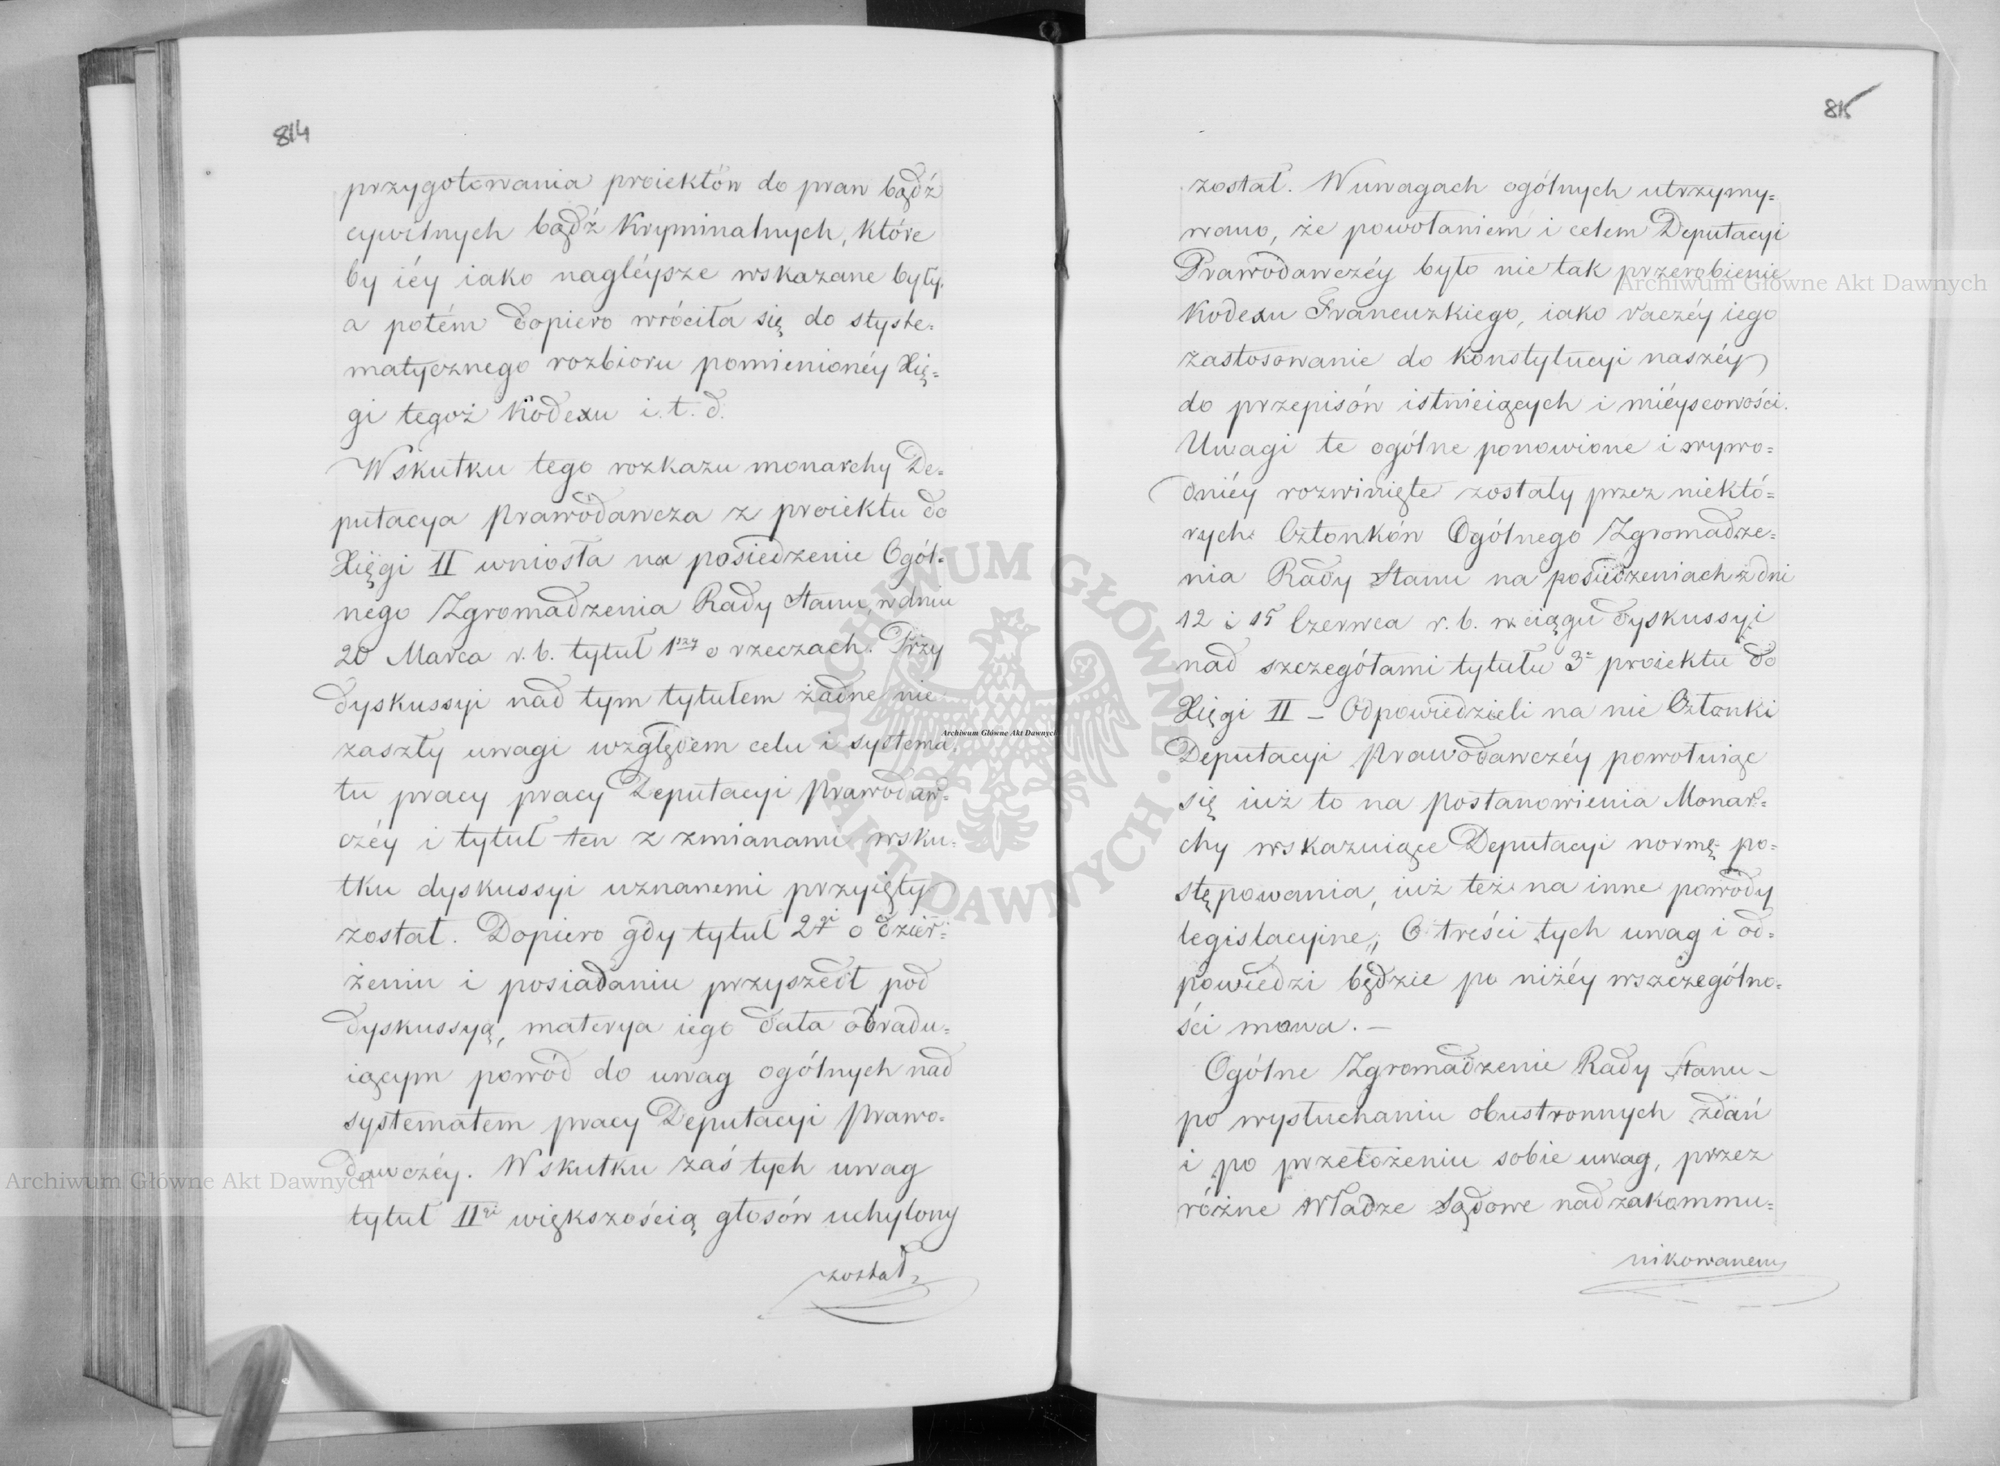 814
przygotowania proiektów do praw bądź
cywilnych bądź Kryminalnych, które
by iéy iako nagléysze wskazane były,
a potém dopiero wróciła się do syste=
matycznego rozbioru pomienionéy Xię=
gi tegoż Kodexu i.t.d.
Wskutku tego rozkazu monarchy De=
putacya Prawodawcza z proiektu do
Xięgi II wniosła na posiedzenie Ogól=
nego Zgromadzenia Rady Stanu w dniu
20 Marca r.b. tytuł 1szy o rzeczach. Przy
dyskussyi nad tym tytułem żadne nie
zaszły uwagi względem celu i systema
tu pracy pracy Deputacyi Prawodaw=
czéy i tytuł ten z zmianami wsku=
tku dyskussyi uznanemi przyięty
został. Dopiero gdy tytuł 2gi o dzier=
żeniu i posiadaniu przyszedł pod
dyskussyą, materya iego dała obradu=
iącym powód do uwag ogólnych nad
systematem pracy Deputacyi Prawo=
dawczéy. Wskutku zaś tych uwag
tytuł IIgi większością głosów uchylony
został
815
został. W uwagach ogólnych utrzymy=
wano, że powołaniem i celem Deputacyi
Prawodawczéy było nie tak przerobienie
Kodexu Francuzkiego, iako raczéy iego
zastosowanie do Konstytucyi naszéy
do przepisów istnieiących i miéyscowości.
Uwagi te ogólne ponowione i wywo=
dniéy rozwinięte zostały przez niektó=
rych Członków Ogólnego Zgromadze=
nia Rady Stanu na posiedzeniach z dni
12 i 15 Czerwca r.b. w ciągu dyskussyi
nad szczegółami tytułu 3º proiektu do
Xięgi II – Odpowiedzieli na nie Członki
Deputacyi Prawodawczéy powołuiąc
się iuż to na postanowienia Monar=
chy wskazuiące Deputacyi normę po=
stępowania, iuż też na inne powody
legislacyine; O treści tych uwag i od=
powiedzi będzie po niżéy wszczególno=
ści mowa. –
Ogólne Zgromadzenie Rady Stanu –
po wysłuchaniu obustronnych zdań
i po przełożeniu sobie uwag, przez
różne Władze Sądowe nad zakommu=
nikowanemi
Archiwum Główne Akt Dawnych
Archiwum Główne Akt Dawnych
Archiwum Główne Akt Dawnych
ARCHIWUM GŁÓWNE · AKT DAWNYCH ·